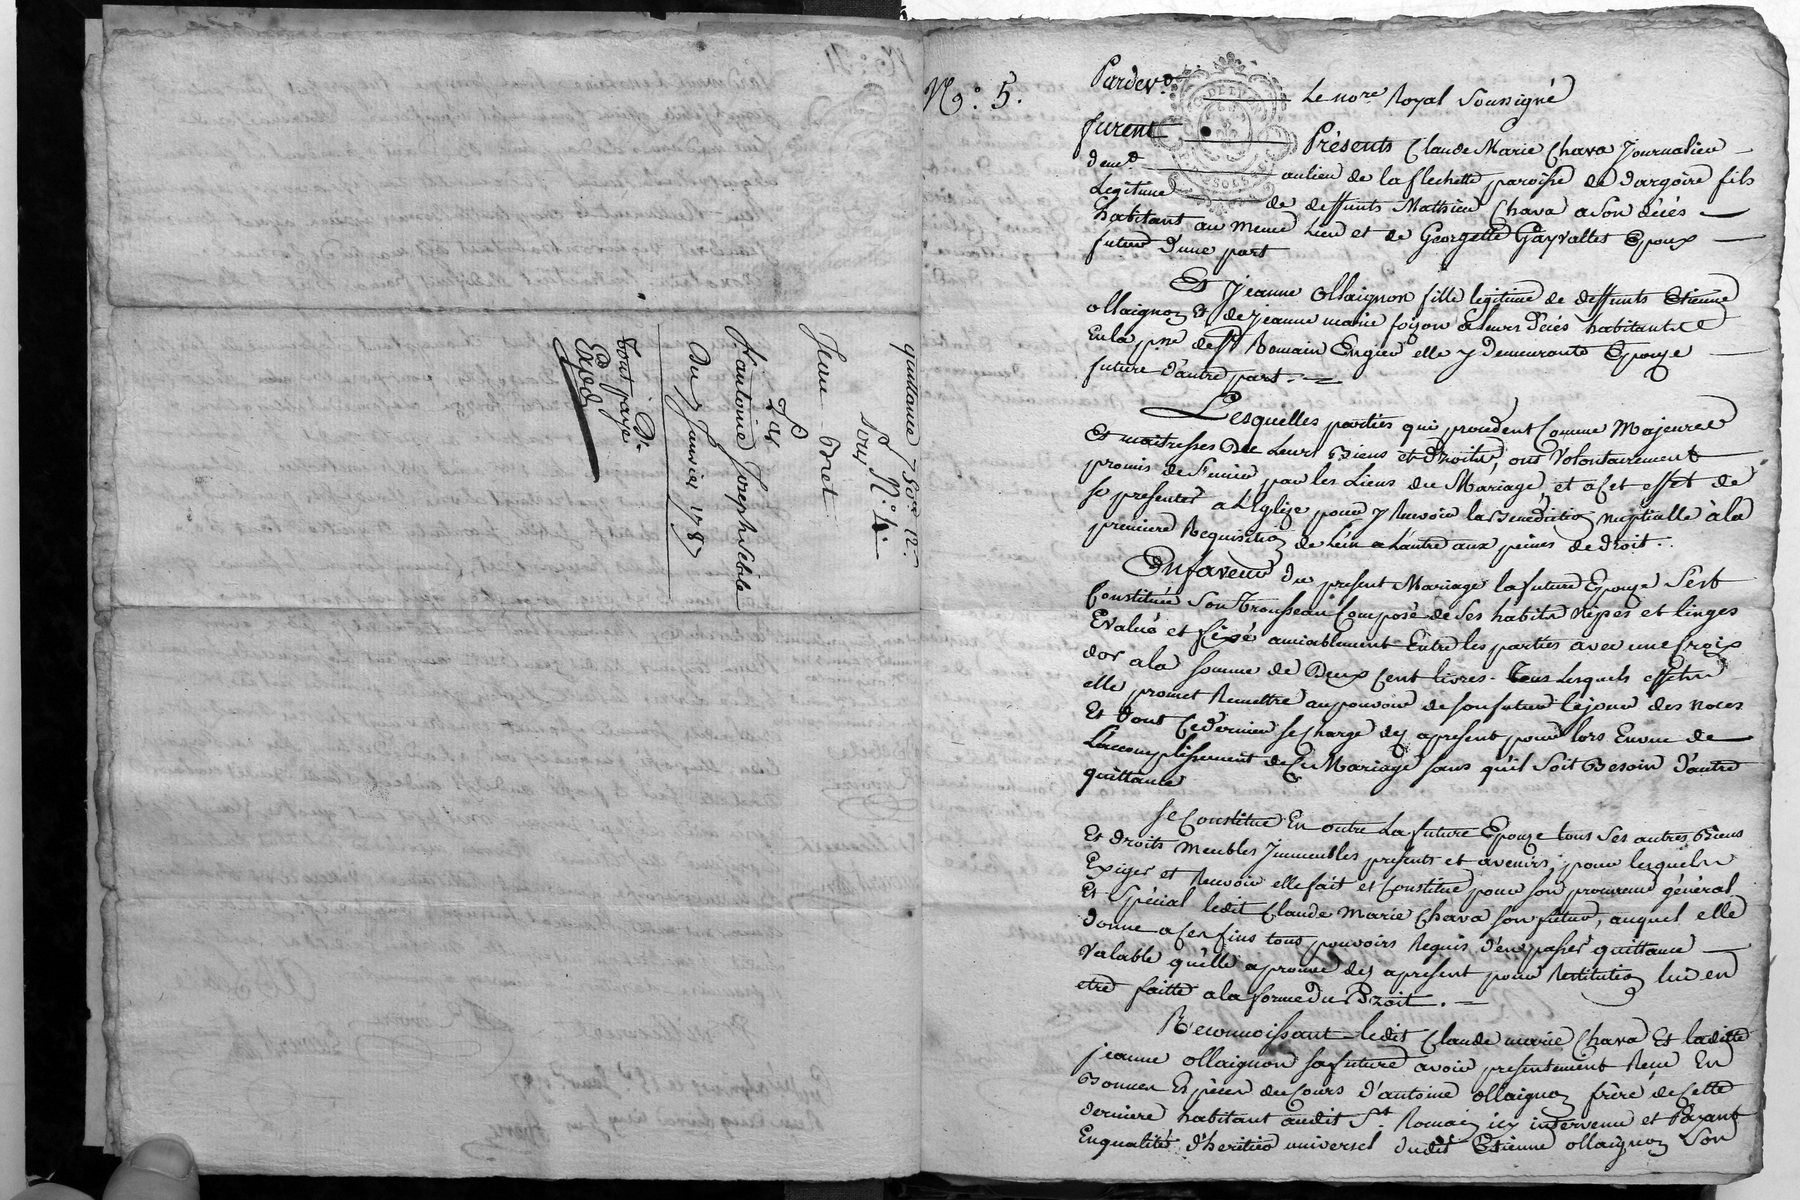 quittance 750ᵗᵗ 12ˢ
Pour N°. 4.
Jean Bret
Par
Sr. antoine Joseph
Du Janvier 1787
D.
bout payé
Exped
N°. 5.
Pardevt. Le nore. Royal Soussigné
furent Présents Claude Marie Chava Journalier
demt. au lieu de la flechette paroisse de dargoire fils
Legitime de deffunts Mathieu Chava a Son décés
habitant au meme Lieu et de Georgette Gayvallet Epoux
futur d'une part
Et Jeanne Ollaignon fille legitime de deffunts Etienne
Ollaignon Et de jeanne marie foison a leurs décés habitants
En la psse. de St. Romain En gier elle y demeurante Epouze
future d'autre part.
Lesquelles parties qui procedent Comme Majeures
Et maitresses De Leurs Biens et Droits, ont Volontairement
promis de S'unir par les Liens du Mariage, et a cet effet de
se presenter a L'Eglise pour y Recevoir la Benediction nuptialle à la
premiere Requisition de L'un a L'autre aux peines de droit.
En faveur du present Mariage la future Epouze S'est
Constituée Son Trousseau Composé de Ses habits Nipes et linges
Evalué et fixé amiablement Entre les parties avec une Croix
dor a la somme de Deux Cent livres. Tous Lesquels effets
elle promet Remettre au pouvoir de son futur le jour des noces
Et dont Ce dernier se charge des apresent pour lors En vue de
L'accomplissement de Ce Mariage sans qu'il Soit Besoin d'autre
quittance
se Constitue En outre La future Epouze tous Ses autres Biens
Et droits Meubles Immeubles presents et avenirs, pour lesquels
Exiger et Recevoir elle fait et Constitue pour son procureur général
Et Spécial ledit Claude Marie Chava son futur, auquel elle
donne a ces fins tous pouvoirs Requis d'en passer quittance
Valable qu'elle aprouve des apresent pour Restitution lui en
etre faitte a la forme Du Droit.
Reconnoissant ledit Claude marie Chava Et laditte
jeanne Ollaignon sa future avoir presentement Reçu En
Bonnes Espèces de Cours d'antoine Ollaignon frère de Cette
derniere habitant audit St. Romain icy intervenu et Payant
En qualité d'heritier universel dudit Etienne Ollaignon Son